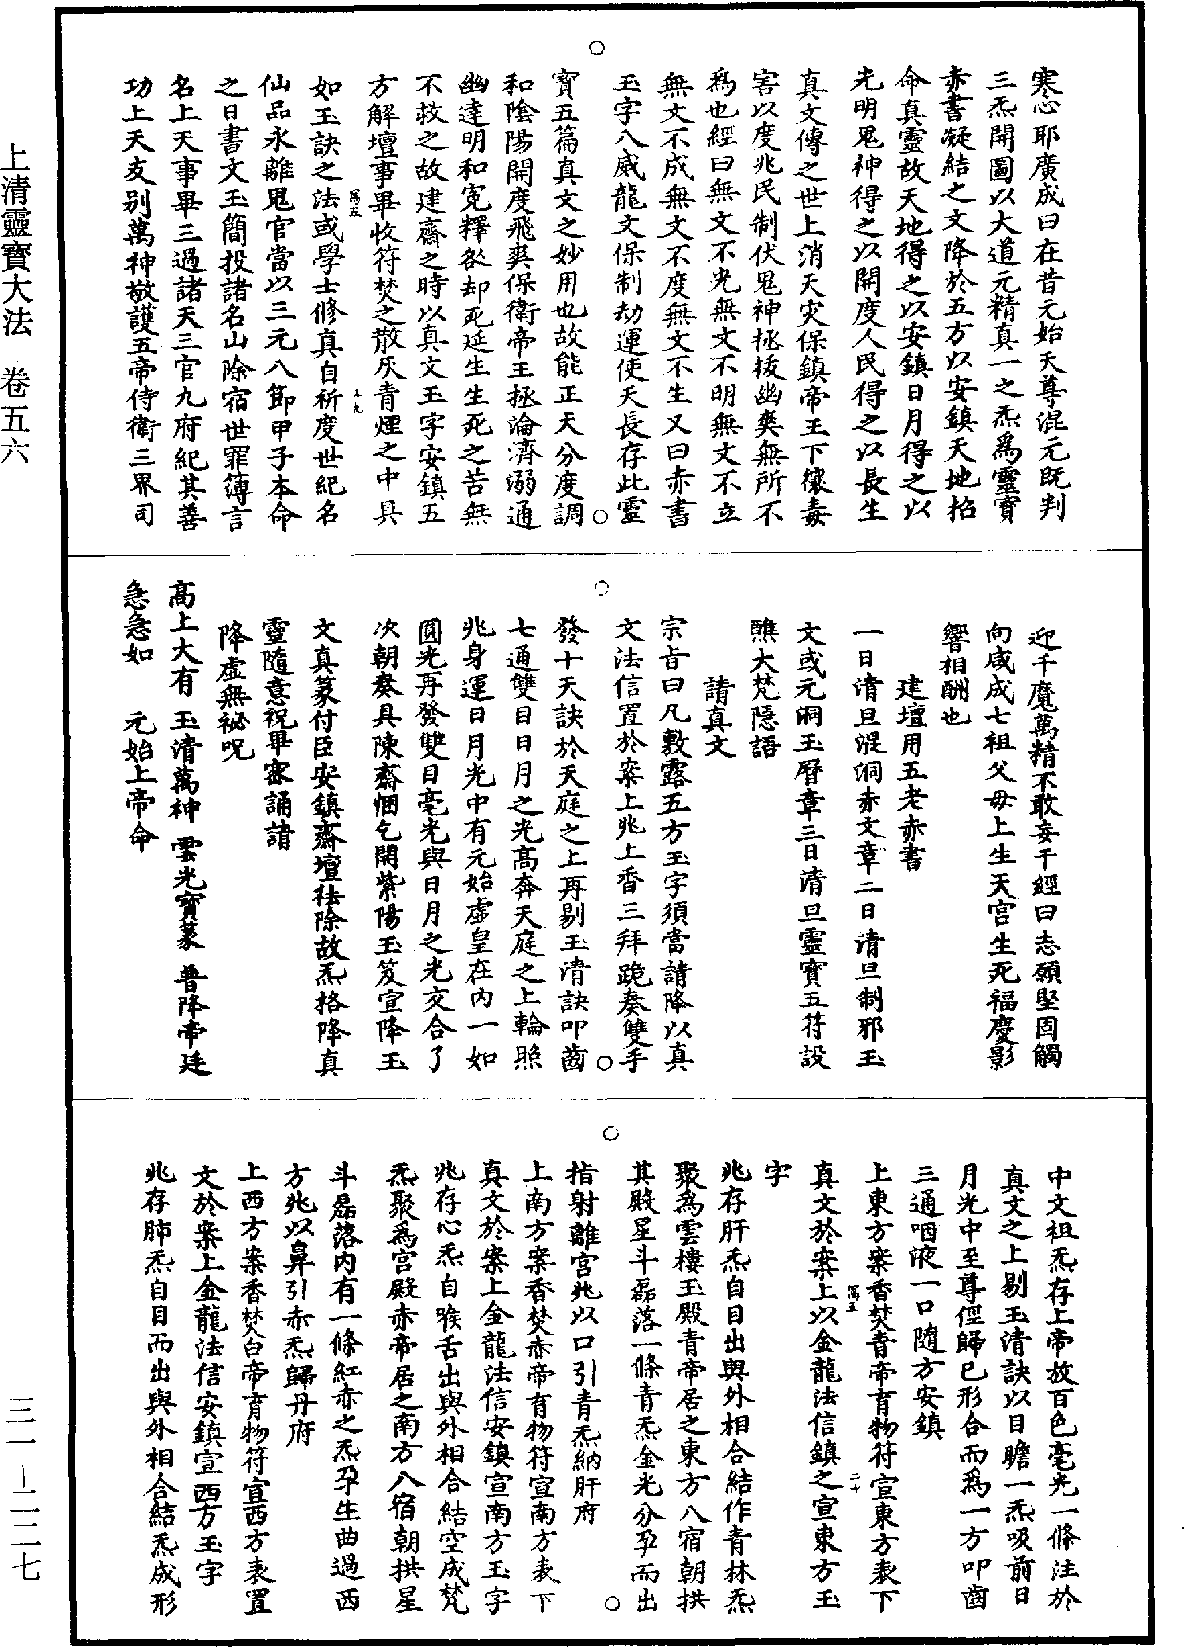 上清靈寶大法　卷五六
三一—二二七
寒心耶廣成曰在昔元始天尊混元既判
三炁開圖以大道元精真一之炁為靈寶
赤書凝結之文降於五方以安鎮天地招
命真靈故天地得之以安鎮日月得之以
光明鬼神得之以開度人民得之以長生
真文傳之世上消天灾保鎮帝王下禳毒
害以度兆民制伏鬼神拯拔幽爽無所不
為也經曰無文不光無文不明無文不立
無文不成無文不度無文不生又曰赤書
玉字八威龍文保制劫運使天長存此靈
寶五篇真文之妙用也故能正天分度調
和陰陽開度飛爽保衛帝王拯淪濟溺通
幽達明和寃釋餤却死延生生死之苦無
不救之故建齋之時以真文玉字安鎮五
方解壇事畢收符焚之散灰青煙之中具
如玉訣之法或學士修真自祈度世紀名
仙品永離鬼官當以三元八節甲子本命
之日書文玉簡投諸名山除宿世罪簿言
名上天事畢三過諸天三官九府紀其善
功上天友別萬神敬護五帝侍衛三界司
迎千魔萬精不敢妄干經曰志願堅固觸
向咸成七祖父母上生天宫生死福慶影
響相酬也
建壇用五老赤書
一日清旦混洞赤文章二日清旦制邪玉
文或元洞玉曆章三日清旦靈寶五符設
醮大梵隱語
請真文
宗旨曰凡敷露五方玉字須當請降以真
文法信置於案上兆上香三拜跪奏雙手
發十天訣於天庭之上再剔玉清訣叩齒
七通雙目日月之光高奔天庭之上輪照
兆身運日月光中有元始虛皇在内一如
圓光再發雙目毫光與日月之光交合了
次朝奏具陳齋悃乞開紫陽玉笈宣降玉
文真篆付臣安鎮齋壇祛除故炁格降真
靈隨意祝畢密誦請
降虛無祕呪
高上大有　玉清萬神　雲光寶篆　普降帝廷
急急如　元始上帝命
中文祖炁存上帝放百色毫光一條注於
真文之上剔玉清訣以目瞻一炁吸前日
月光中至尊徑歸已形合而為一方叩齒
三通咽液一口隨方安鎮
上東方案香焚青帝育物符宣東方表下
真文於案上以金龍法信鎮之宣東方玉
字
兆存肝炁自目出與外相合結作青林炁
聚為雲樓玉殿青帝居之東方八宿朝拱
其殿星斗磊落一條青炁金光分孕而出
指射離宫兆以口引青炁納肝府
上南方案香焚赤帝育物符宣南方表下
真文於案上金龍法信安鎮宣南方玉字
兆存心炁自喉舌出與外相合結空成梵
炁聚為宫殿赤帝居之南方八宿朝拱星
斗磊落内有一條紅赤之炁孕生曲過西
方兆以鼻引赤炁歸丹府
上西方案香焚白帝育物符宣西方表置
文於案上金龍法信安鎮宣西方玉字
兆存肺炁自目而出與外相合結炁成形